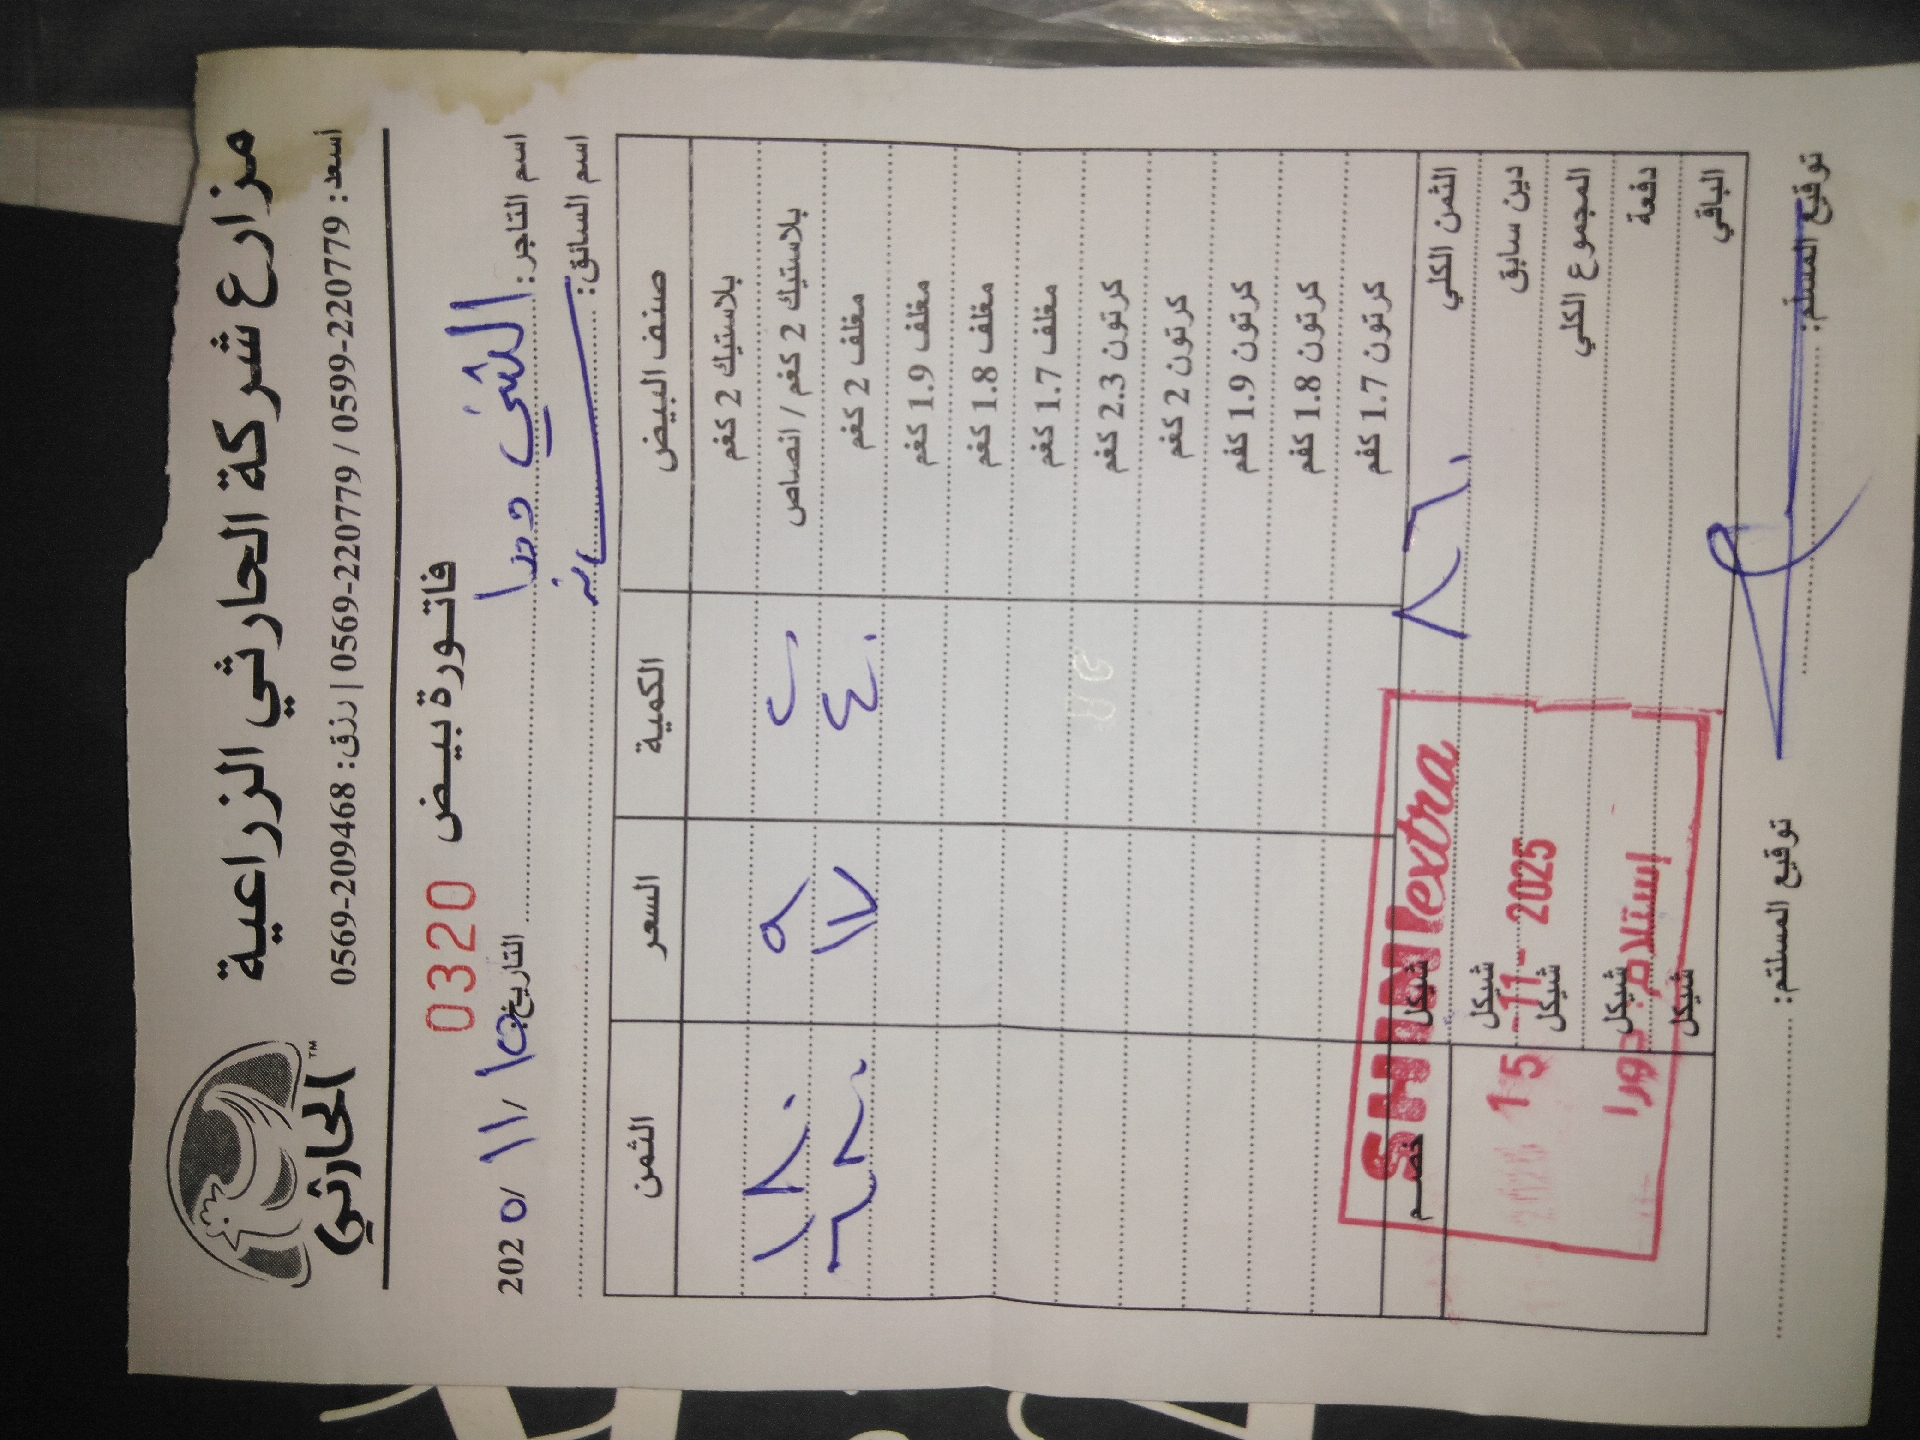 مزارع شركة الحارثي الزراعية
أسعد: 0599-220779 / 0569-220779 | رزق: 0569-209468
الحارثي ™
فاتورة بيض 0320
اسم التاجر: الشني دورا التاريخ ١٥/ ١١/ 202٥
اسم السائق:
صنف البيض الكمية السعر الثمن
بلاستيك 2 كغم
بلاستيك 2 كغم / انصاص ٢٠ ٩ ١٨٠
مغلف 2 كغم ٤٠ ١٧ ٦٨٠
مغلف 1.9 كغم
مغلف 1.8 كغم
مغلف 1.7 كغم
كرتون 2.3 كغم
كرتون 2 كغم
كرتون 1.9 كغم
كرتون 1.8 كغم
كرتون 1.7 كغم
الثمن الكلي ٨٦٠ شيكل خصم
دين سابق شيكل
المجموع الكلي شيكل
دفعة شيكل
الباقي شيكل
SHINI extra
15 -11- 2025
إستلام دورا
توقيع المسلم: توقيع المستلم: